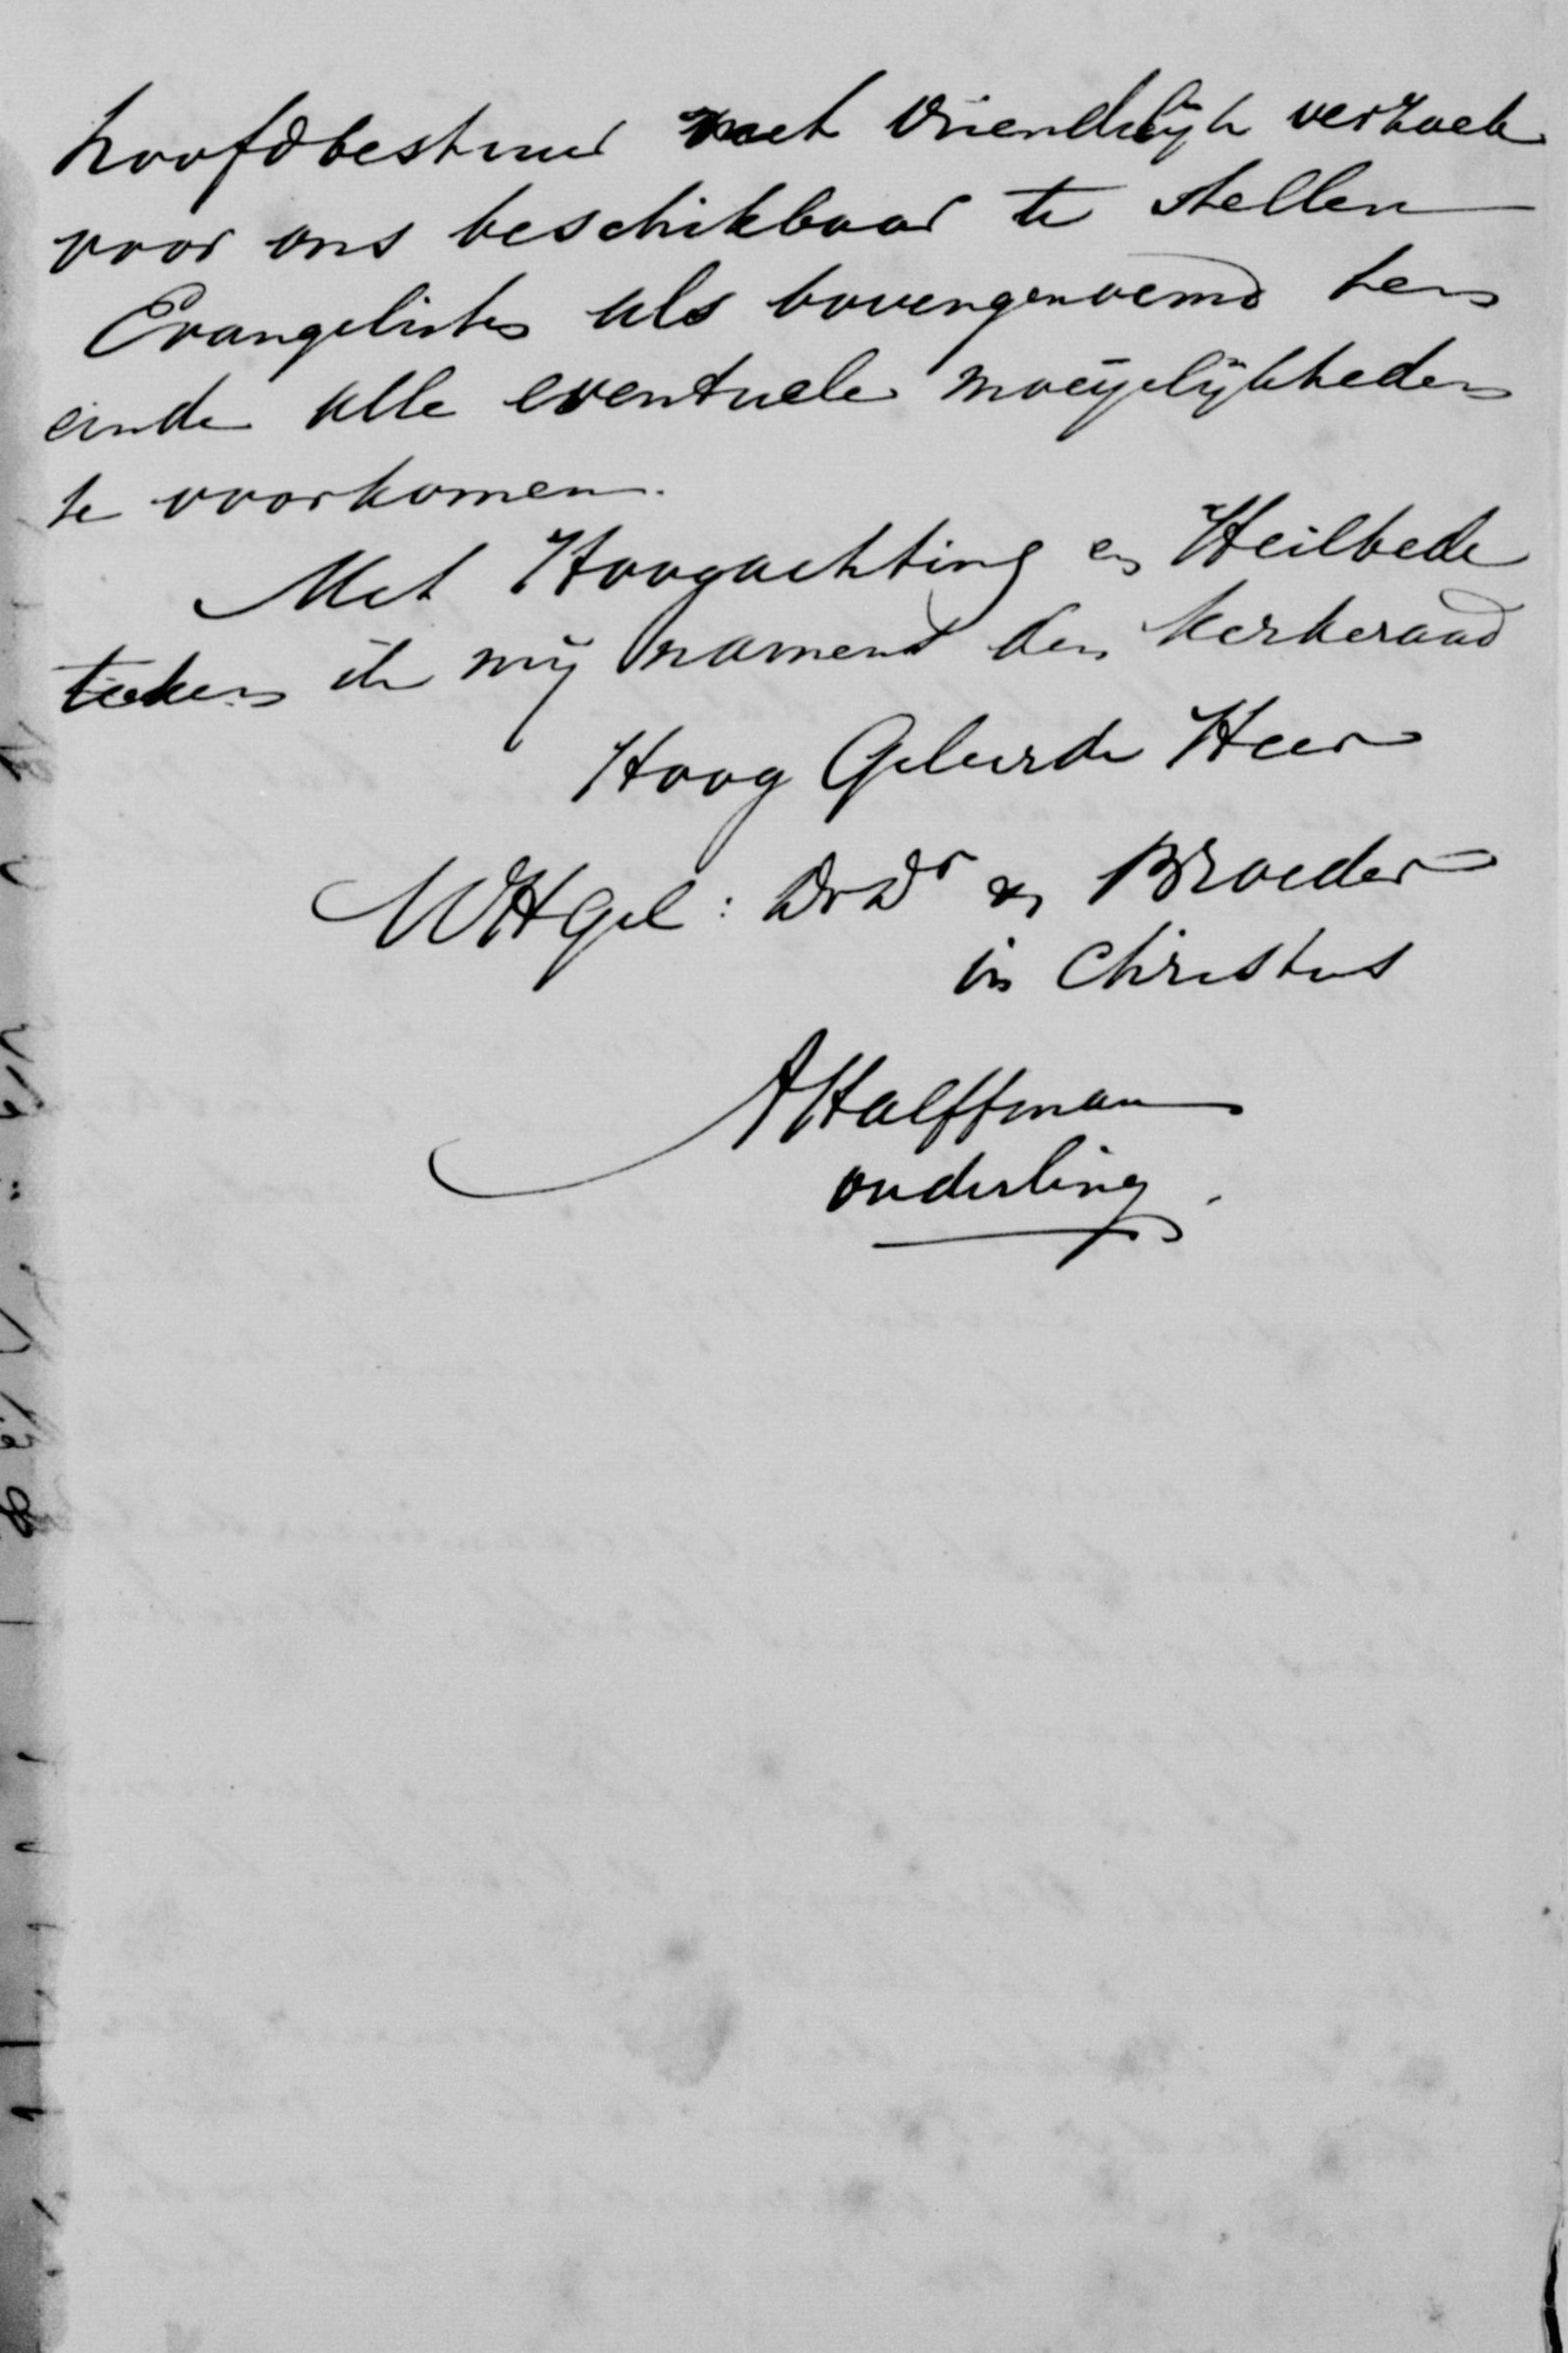 hoofdbestuur met vriendelijk verzoek
voor ons beschikbaar te stellen
Evangelistes als bovengenoemd ten
einde alle eventuele moeijelijkheden
te voorkomen.
Met Hoogachting en Heilbede
teeken ik mij namens den kerkeraad
Hoog Geleerde Heer
UWHGel: DwDr en Broeder
in Christus
AHalffman
ouderling.